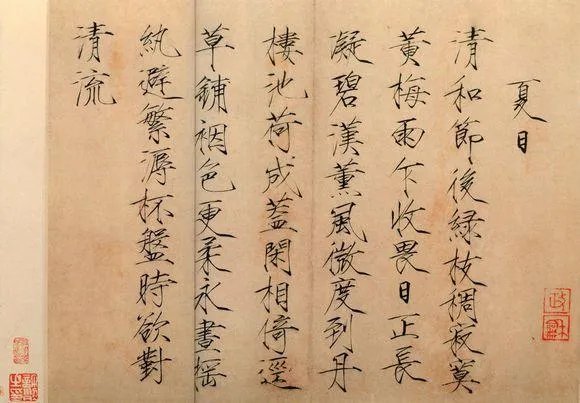 夏日
清和節後緑枝稠寂莫
黄梅雨乍收畏日正長
凝碧漢薰風微度到丹
樓池荷成蓋閑相倚逕
草鋪裀色更柔永晝搖
紈避繁溽杯盤時欲對
清流